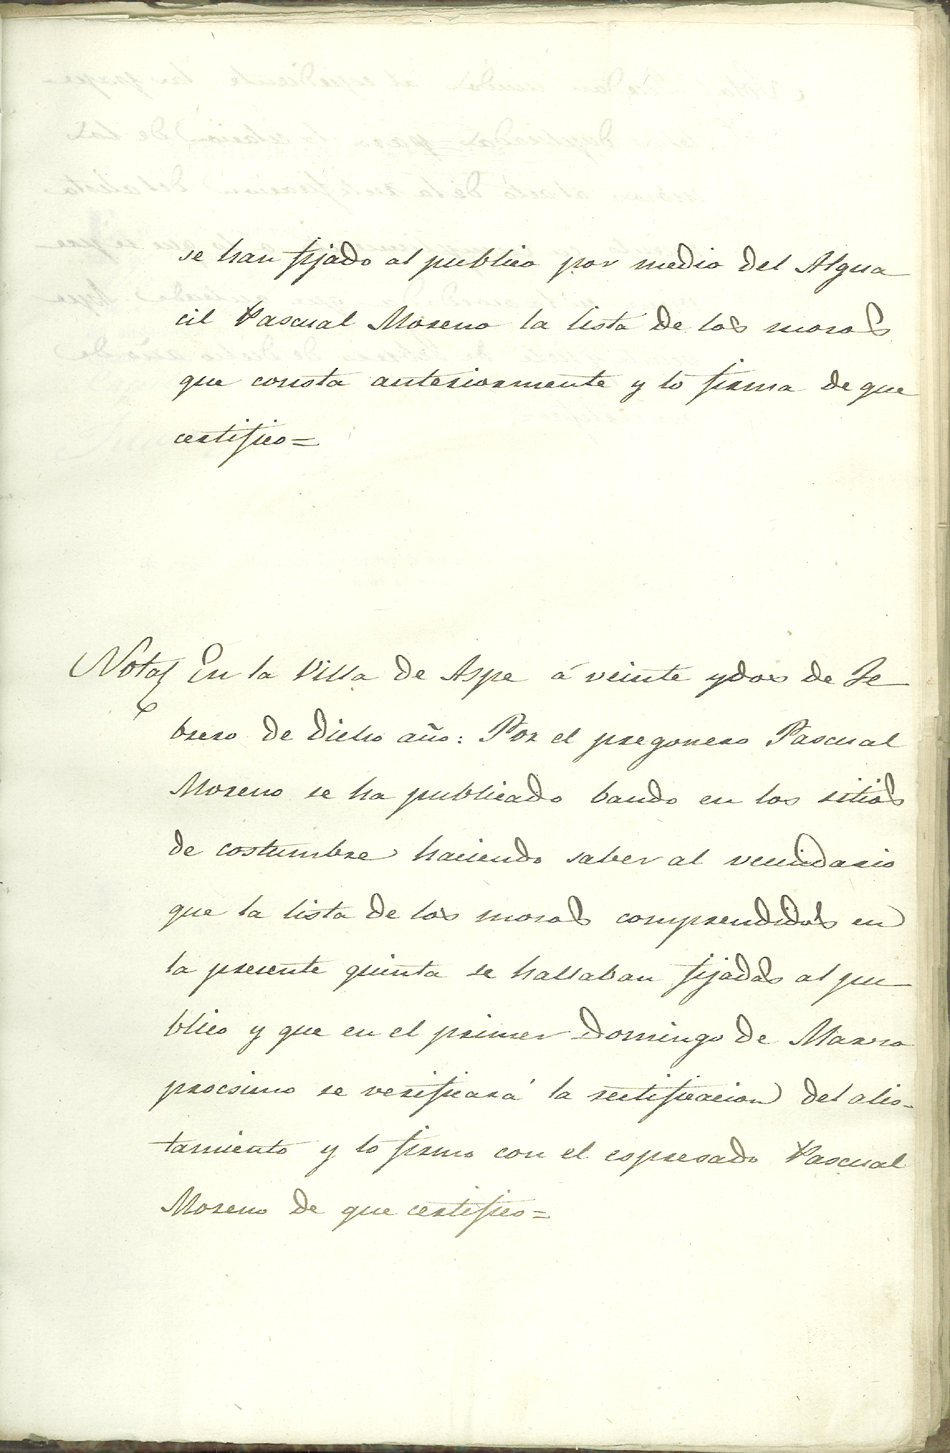 se han fijado al publico por medio del Algua
cil Pascual Moreno la lista de los mosos
que consta anteriormente y lo firma de que
certifico=
Nota En la Villa de Aspe á veinte y dos de Fe
brero de dicho año: Por el pregonero Pascual
Moreno se ha publicado bando en los sitios
de costumbre haciendo saber al vecindario
que la lista de los mosos comprendidos en
la presente quinta se hallaban fijadas al pu
blico y que en el primer Domingo de Marzo
procsimo se verificará la rectificacion del alis-
tamiento y lo firmo con el espresado Pascual
Moreno de que certifico=